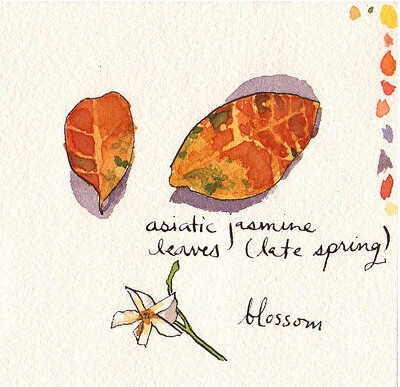 asiatic jasmine
leaves (late spring)
blossom